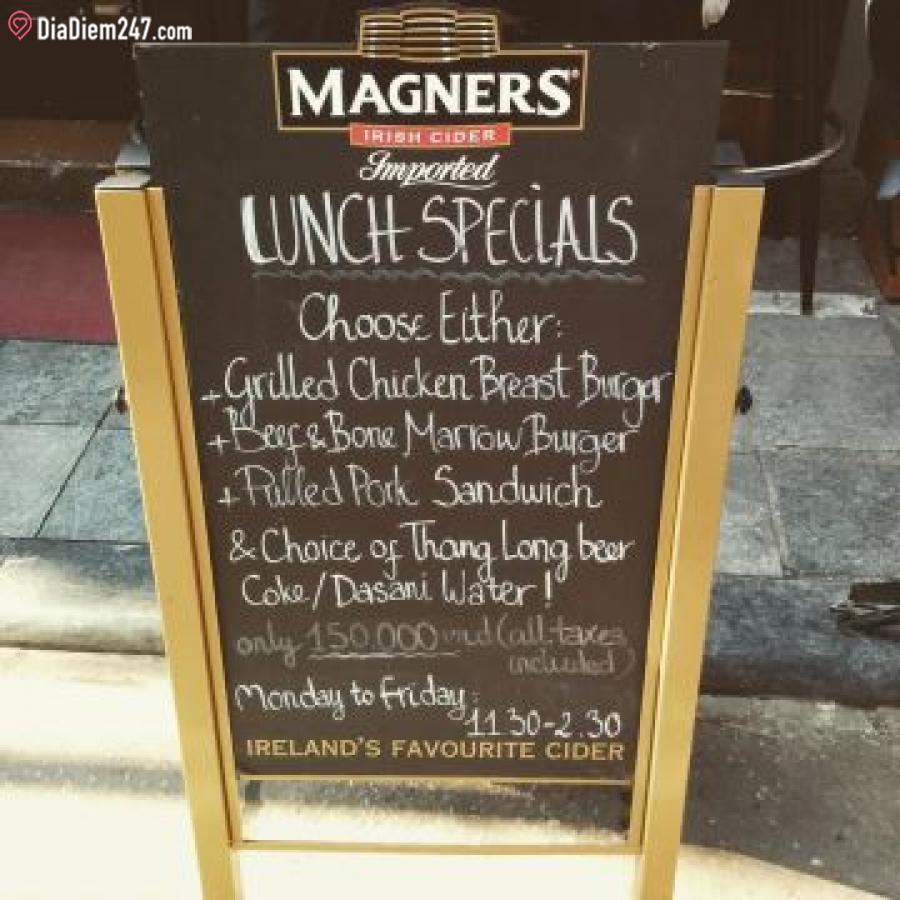 DiaDiem247.com
MAGNERS
IRISH CIDER
Imported
LUNCH SPECIALS
Choose Either:
+ Grilled Chicken Breast Burger
+ Beef & Bone Marrow Burger
+ Pulled Pork Sandwich
& Choice of Thang Long beer
Coke/Dasani Water!
only 150.000 vnd (all taxes
included)
Monday to Friday:
11.30-2.30
IRELAND'S FAVOURITE CIDER